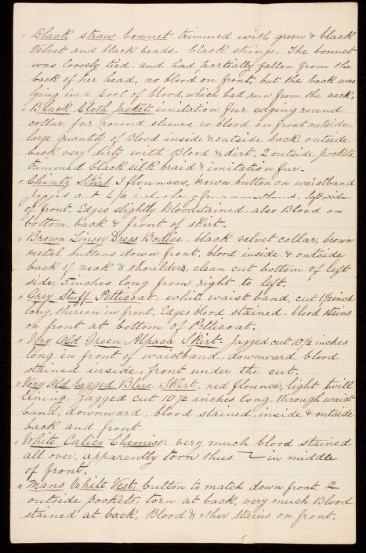 Black straw bonnet trimmed with green & black
Velvet and black beads. black strings. The bonnet
was loosely tied, and had partially fallen from the
back of her head, no blood on front, but the back was
lying in a pool of blood, which had run from the neck,
Black Cloth Jacket imitation fur edging round
collar, fur round sleeves no blood on front outside,
large quantity of Blood inside & outside back, outside
back very dirty with Blood & dirt, 2 outside pockets,
trimmed black silk braid & imitation fur.
Chintz Skirt 3 flounces, brown button on waistband
Jagged cut left side
of front, Edges slightly Bloodstained, also Blood on
bottom, back & front of skirt.
Brown Linsey Dress Bodice, black velvet collar, brown
metal buttons down front, blood inside & outside
back of neck & shoulders, clean cut bottom of left
side, 5 inches long from right to left.
Grey Stuff Petticoat, white waist band, cut 1½ inch
long, thereon in front, Edges blood stained, blood stains
on front at bottom of Petticoat.
Very Old Green Alpaca Skirt. Jagged cut 10½ inches
long in front of waistband, downward, blood
stained inside, front under the cut.
Very Old ragged Blue Skirt, red flounce, light twill
lining, jagged cut 10½ inches long, through waist
band, downward, blood stained, inside & outside
back and front
White Calico Chemise, very much blood stained
all over, apparently torn thus in middle
of front.
Mans White Vest, button to match down front 2
outside pockets, torn at back, very much Blood
stained at back, Blood & other stains on front.